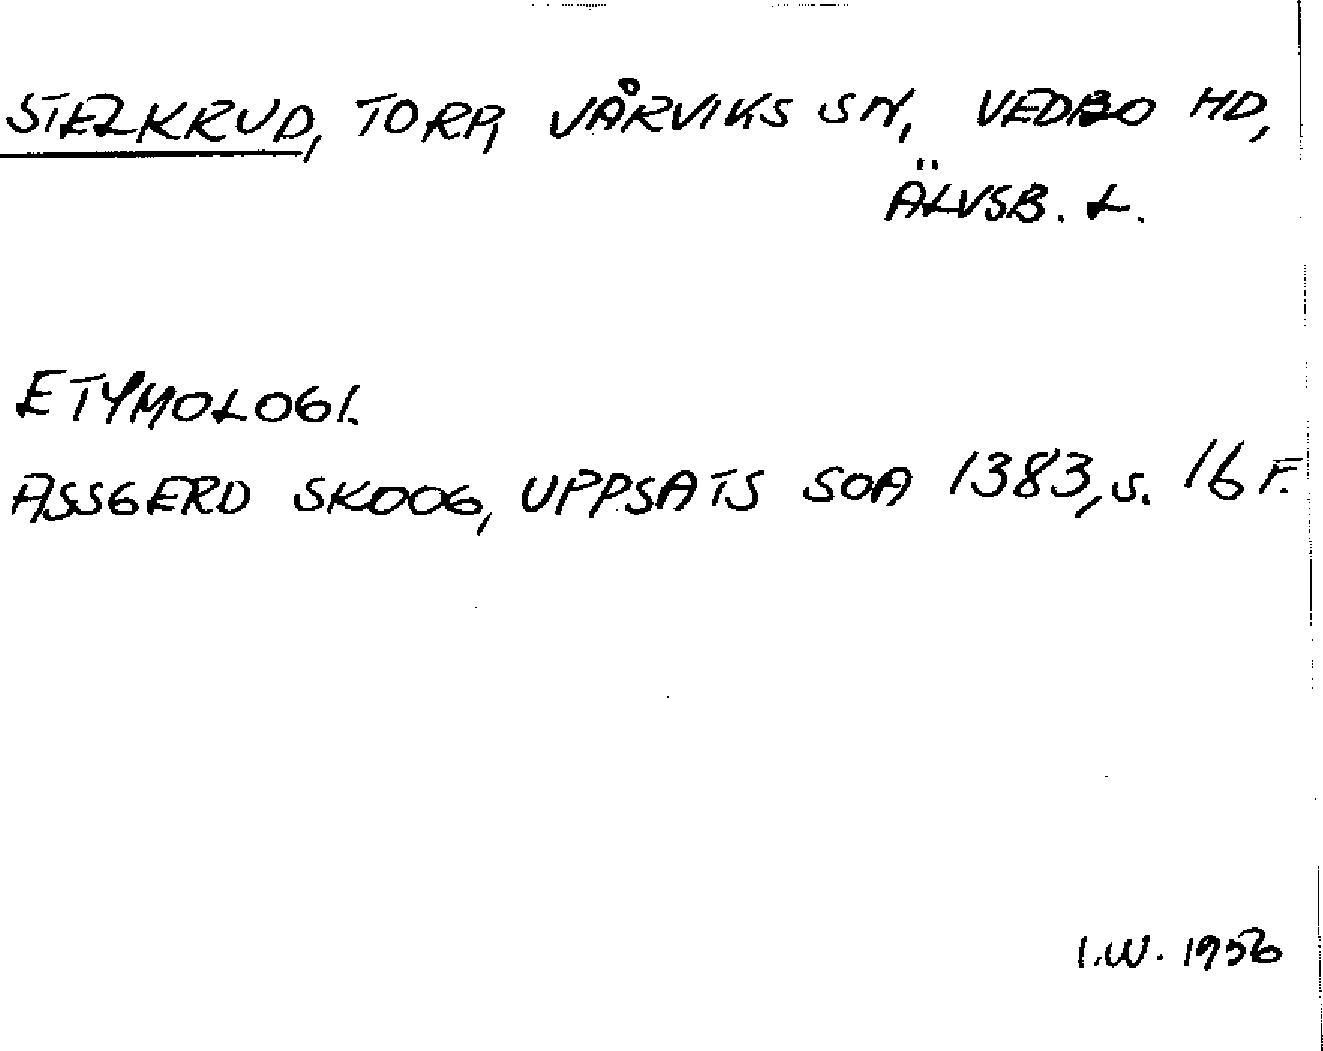 STELKRUD, TORP, VÅRVIKS SN, VEDBO HD,
ÄLVSB. L.
ETYMOLOGI.
ASSGERD SKOOG, UPPSATS SOA 1383, S. 16 F.
I.W. 1956